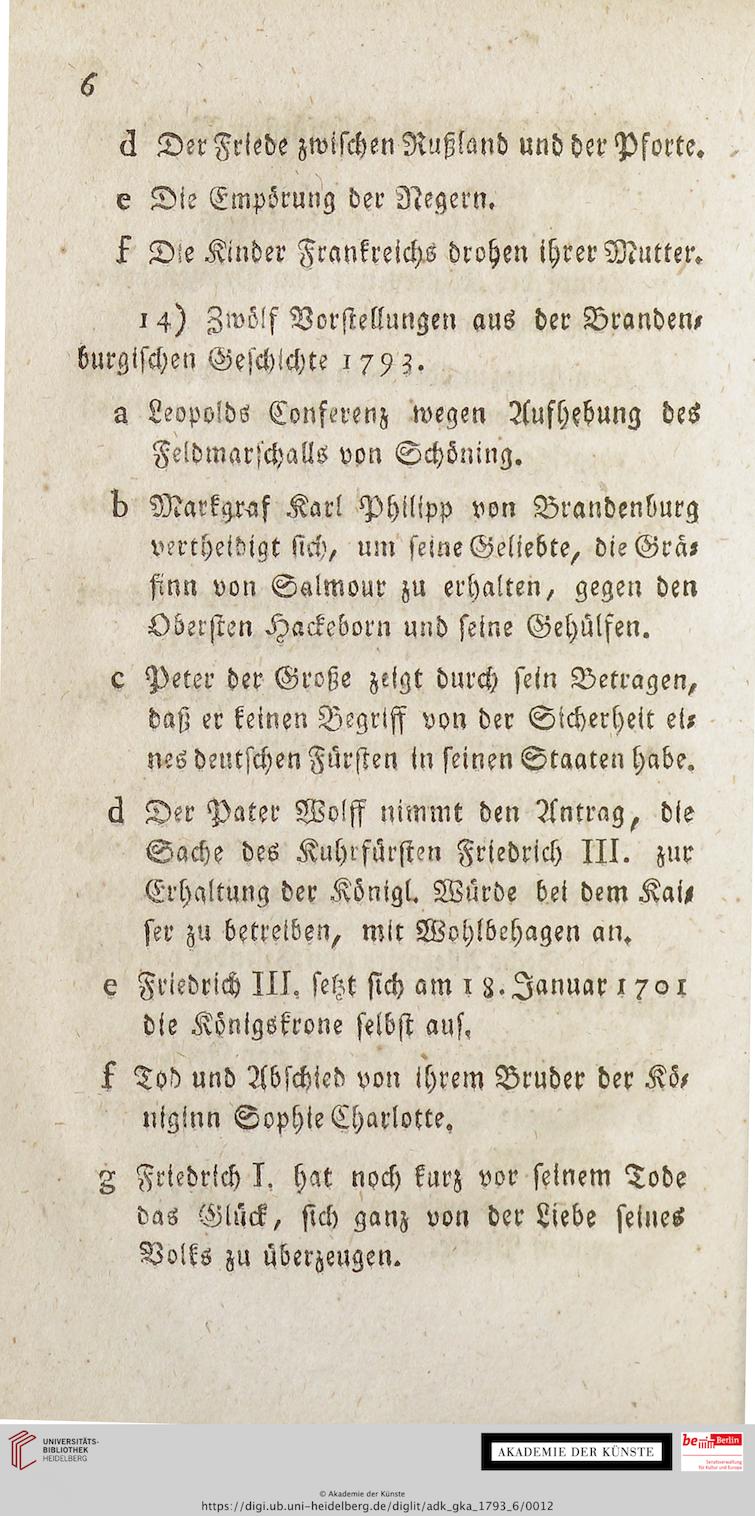 6
d Der Friede zwischen Rußland und der Pforte.
e Die Empörung der Negern.
f Die Kinder Frankreichs drohen ihrer Mutter.
14) Zwölf Vorstellungen aus der Branden-
burgischen Geschichte 1793.
a Leopolds Conferenz wegen Aufhebung des
Feldmarschalls von Schöning.
b Markgraf Karl Philipp von Brandenburg
vertheidigt sich, um seine Geliebte, die Grä-
finn von Salmour zu erhalten, gegen den
Obersten Hackeborn und seine Gehülfen.
c Peter der Große zeigt durch sein Betragen,
daß er keinen Begriff von der Sicherheit ei-
nes deutschen Fürsten in seinen Staaten habe.
d Der Pater Wolff nimmt den Antrag, die
Sache des Kuhrfürsten Friedrich III. zur
Erhaltung der Königl. Würde bei dem Kai-
ser zu betreiben, mit Wohlbehagen an.
e Friedrich III. setzt sich am 18. Januar 1701
die Königskrone selbst auf.
f Tod und Abschied von ihrem Bruder der Kö-
niginn Sophie Charlotte.
g Friedrich I. hat noch kurz vor seinem Tode
das Glück, sich ganz von der Liebe seines
Volks zu überzeugen.
UNIVERSITÄTS-
BIBLIOTHEK
HEIDELBERG
AKADEMIE DER KÜNSTE
be Berlin
Senatsverwaltung
für Kultur und Europa
© Akademie der Künste
https://digi.ub.uni-heidelberg.de/diglit/adk_gka_1793_6/0012